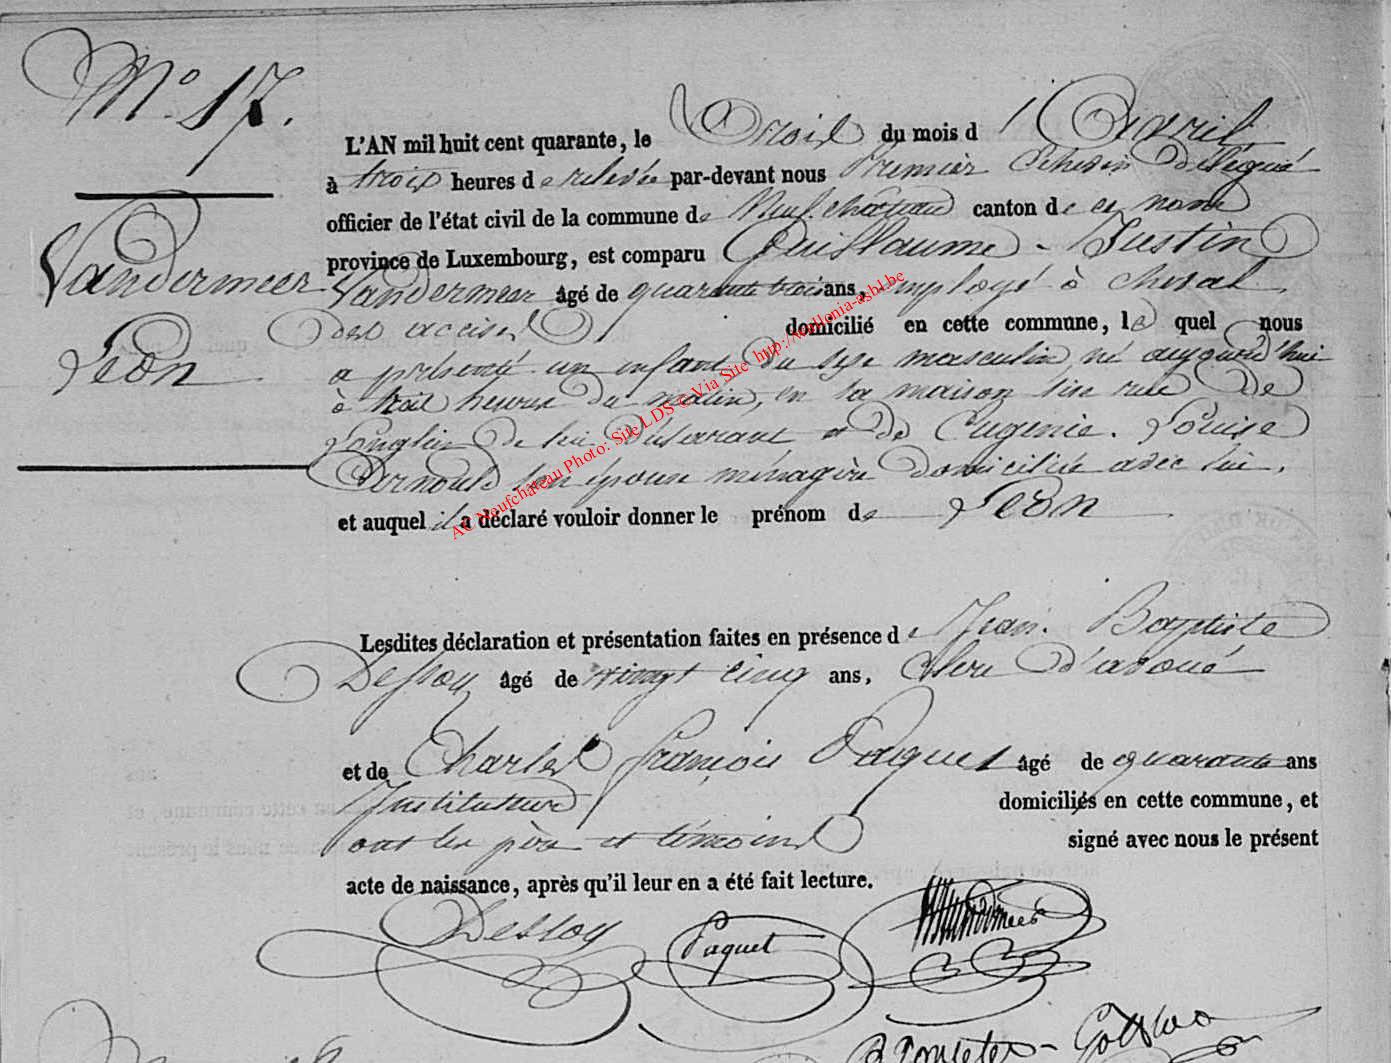 N° 17.
Vandermeer
Léon
L'AN mil huit cent quarante, le trois du mois d'Avril
à trois heures de relevée par-devant nous Premier Echevin délégué
officier de l'état civil de la commune de Neufchateau canton de ce nom
province de Luxembourg, est comparu Guillaume-Justin
Vandermeer âgé de quarante trois ans, employé à cheval
des accises domicilié en cette commune, lequel nous
a présenté un enfant du sexe masculin né aujourd'hui
à trois heures du matin, en sa maison sise rue de
Longlier de lui déclarant et de Eugenie-Louise
Arnould son épouse ménagère domiciliée avec lui,
et auquel il a déclaré vouloir donner le prénom de Léon
Lesdites déclaration et présentation faites en présence de Jean-Baptiste
Dessoy âgé de vingt cinq ans, Clerc d'avoué
et de Charles François Paquet âgé de quarante ans
Instituteur domiciliés en cette commune, et
ont les père et témoins signé avec nous le présent
acte de naissance, après qu'il leur en a été fait lecture.
Dessoy Paquet Vandermeer
AC Neufchâteau Photo: Site LDS © Via Site http://wallonia-asbl.be